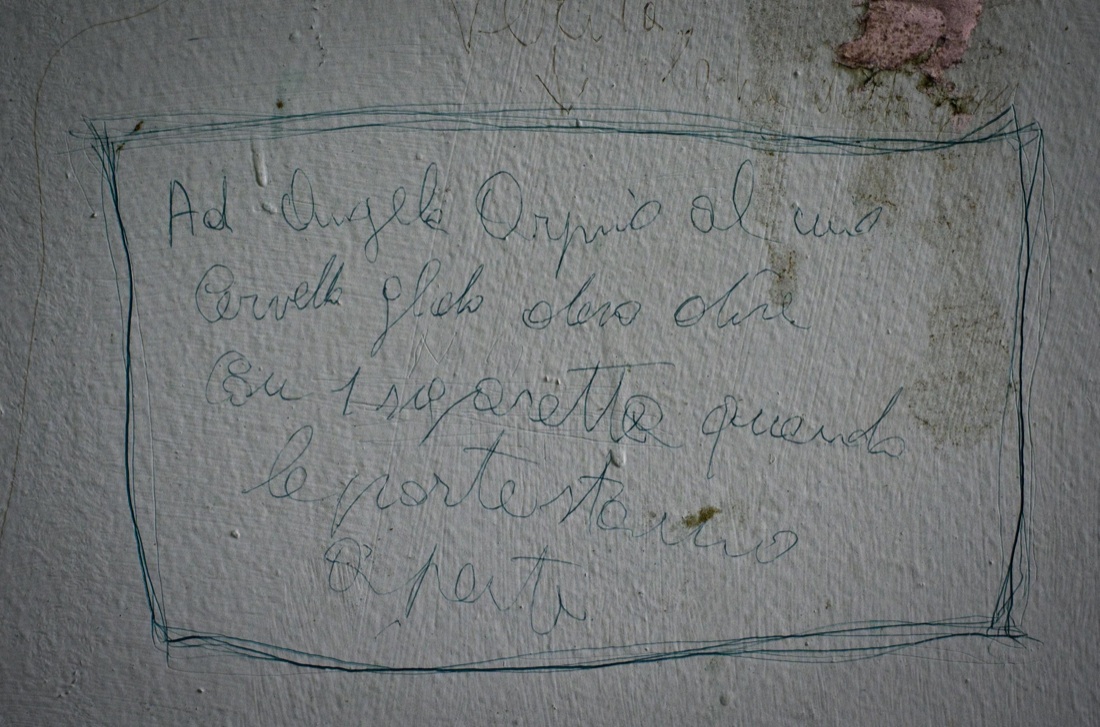 Ad Angelo Orpnio al uno
Cervello glielo devo dire
Con 1 sigaretta quando
le porte stanno
aperti